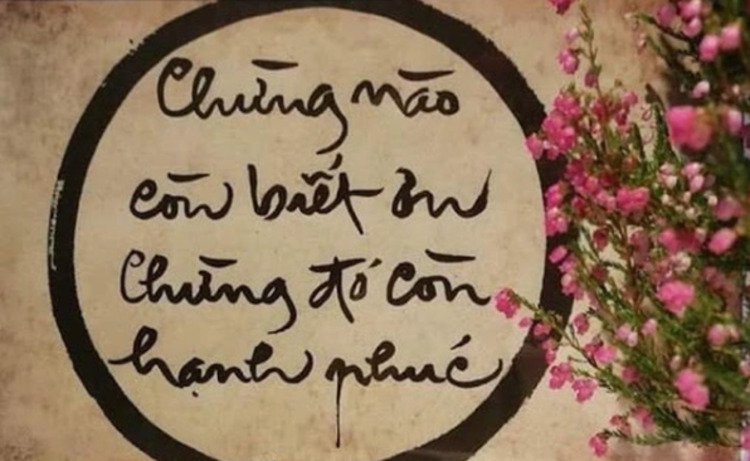 Chừng nào
còn biết ơn
Chừng đó còn
hạnh phúc